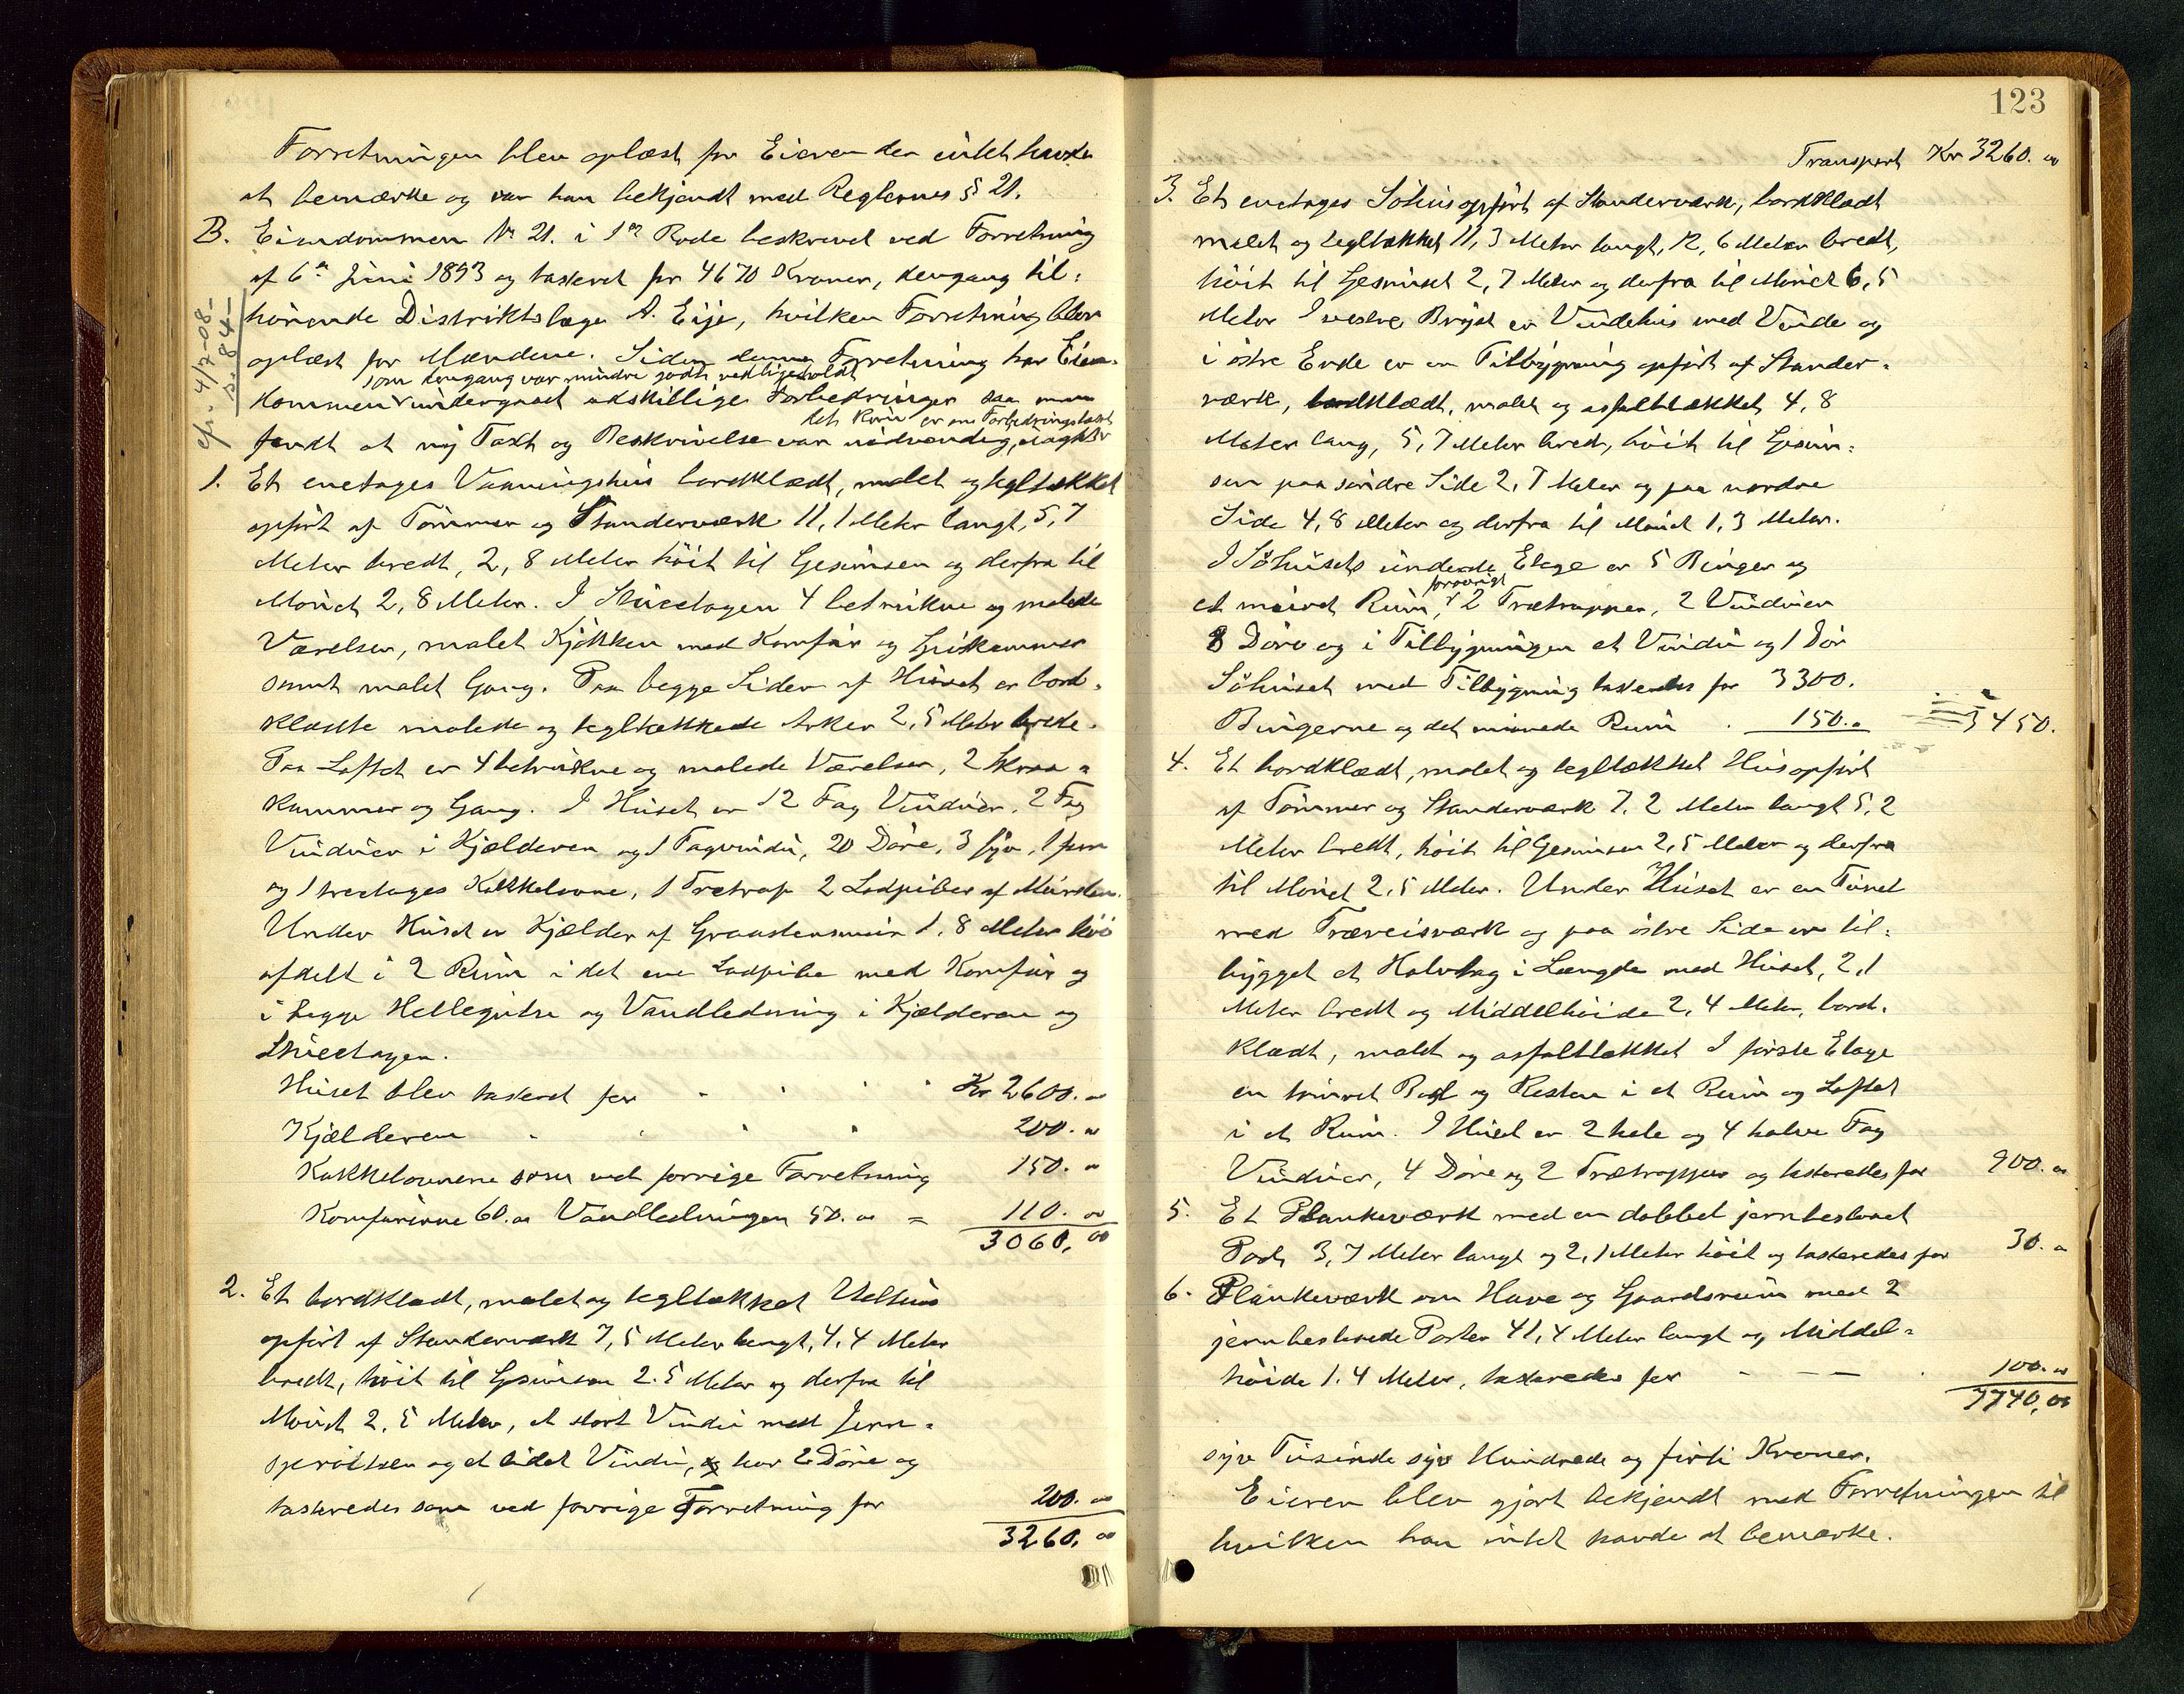 Forretningen blev oplæst for Eieren der intet havde
at bemærke og var han bekjendt med Reglernes § 21.
B. Eiendommen Nr 21. i 1ste Rode beskrevet ved Forretning
af 6te Juni 1893 og taxeret for 4670 Kroner, dengang til=
hørende Distriktslæge A. Eije, hvilken Forretning blev
oplæst for Mændene. Siden denne Forretning har Eien=
som dengang var mindre godt vedligeholdt
dommen undergaaet adskillige Forbedringer saa man
fandt at ny Taxt og Beskrivelse var nødvendig,
cfr. 4/7-08-
s. 84-
1. Et enetages Vaaningshus bordklædt, malet og tegltækket
opført af Tømmer og Standerværk 11,1 Meter langt, 5,7
Meter bredt, 2,8 Meter høit til Gesimsen og derfra til
Mønet 2,8 Meter. I Stueetagen 4 betrukne og malede
Værelser, malet Kjøkken med Komfur og Spiskammer
samt malet Gang. Paa begge Sider af Huset er bord=
klædte malede og tegltækkede Arker 2,5 Meter brede.
Paa Loftet er 4 betrukne og malede Værelser, 2 Skraa=
kammer og Gang. I Huset er 12 Fag Vinduer, 2 Fag
Vinduer i Kjælderen og 1 Tagvindu, 20 Døre, 3 syv, 1 fem
og 1 treetages Kakkelovne, 1 Trætrap 2 Lodpiber af Mursten.
Under Huset er Kjælder af Graastensmur 1,8 Meter høi
afdelt i 2 Rum i det ene Lodpibe med Komfur og
i begge Hellegulve og Vandledning i Kjælderen og
Stueetagen.
Huset blev taxeret for Kr 2600.00
Kjælderen 200.00
Kakkelovnene som ved forrige Forretning 150.00
Komfurerne 60.00 Vandledningen 50.00 = 110.00
3060,00
2. Et bordklædt, malet og tegltækket Uethus
opført af Standerværk 7,5 Meter langt, 4,4 Meter
bredt, høit til Gesimsen 2.5 Meter og derfra til
Mønet 2,5 Meter, et stort Vindu med Jern=
sprodser og et lidet Vindu, har 2 Døre og
taxeredes som ved forrige Forretning for 200.00
3260,00
123
Transport Kr 3260.00
3. Et enetages Søhus opført af Standerværk, bordklædt
malet og tegltækket 11,3 Meter langt, 12,6 Meter bredt,
høit til Gesimset 2,7 Meter og derfra til Mønet 6,5
Meter I vestre Bryst er Vindehus med Vinde og
i østre Ende er en Tilbygning opført af Stander=
værk, bordklædt, malet og asfalttækket 4,8
Meter lang, 5,7 Meter bred, høit til Gesim=
sen paa søndre Side 2,7 Meter og paa nordre
Side 4,8 Meter og derfra til Mønet 1,3 Meter.
I Søhusets underste Etage er 5 Binger og
forøvrigt
et muret Rum, 2 Trætrapper, 2 Vinduer
8 Døre og i Tilbygningen et Vindu og 1 Dør
Søhuset med Tilbygning taxeredes for 3300.
Bingerne og det murede Rum 150.00 3450.
4. Et bordklædt, malet og tegltækket Hus opført
af Tømmer og Standerværk 7,2 Meter langt 5,2
Meter bredt, høit til Gesimsen 2,5 Meter og derfra
til Mønet 2,5 Meter. Under Huset er en
med Træreisværk og paa østre Side er til=
bygget et Halvtag i Længde med Huset, 2,1
Meter bredt og Middelhøide 2,4 Meter, bord=
klædt, malet og asfalttækket I første Etage
en Bod og Resten i et Rum og Loftet
i et Rum. I Huset er 2 hele og 4 halve Fag
Vinduer, 4 Døre og 2 Trætrapper og taxeredes for 900.00
5. Et Plankeværk med en dobbel jernbeslaaet
Port 3,7 Meter langt og 2,1 Meter høit og taxeredes for 30.00
6. Plankeværk om Have og Gaardsrum med 2
jernbeslaaede Porter 41,4 Meter langt og Middel=
høide 1.4 Meter, taxeredes for 100.00
7740,00
syv Tusinde syv Hundrede og firti Kroner.
Eieren blev gjort bekjendt med Forretningen til
hvilken han intet havde at bemærke.